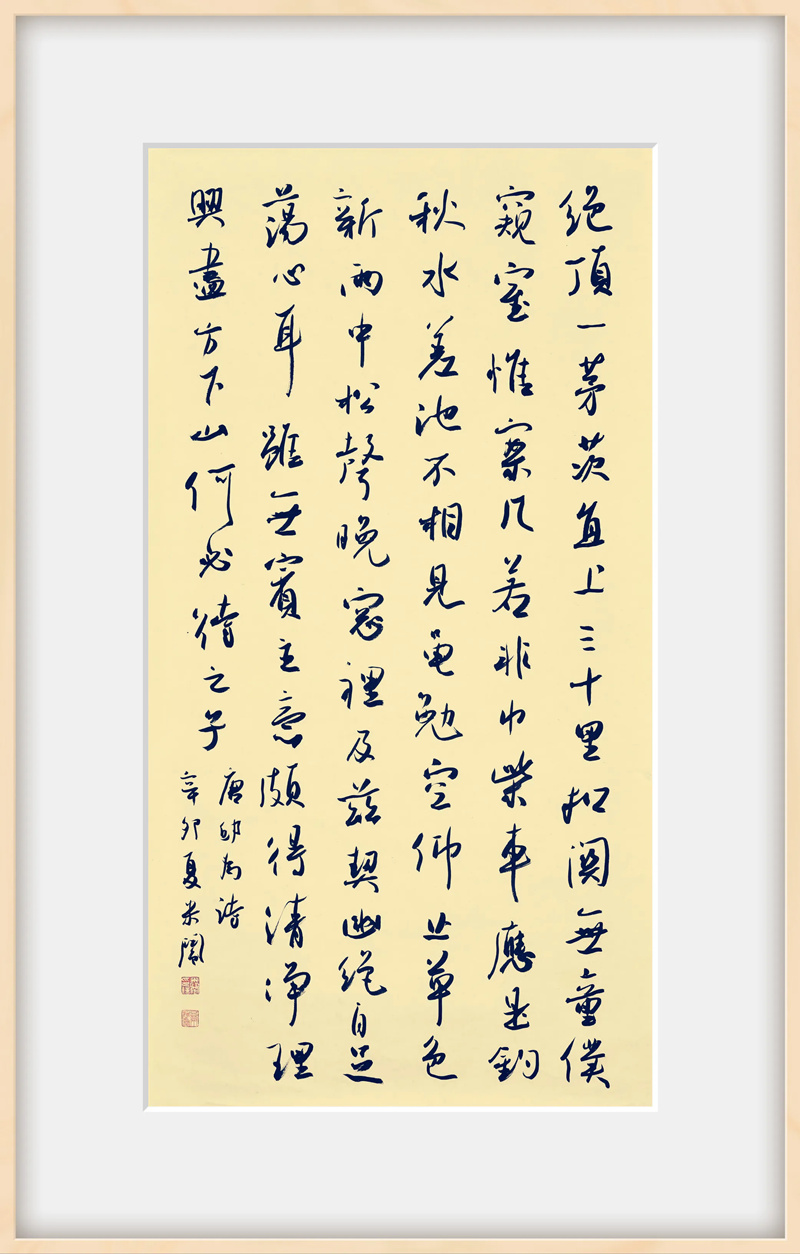 絕頂一茅茨直上三十里扣関無童僕
窺室惟案几若非巾柴車應是釣
秋水差池不相見黽勉空仰止草色
新雨中松聲晚窓裡及茲契幽絕自足
蕩心耳雖無賓主意頗得清淨理
興盡方下山何必待之子
唐邱為詩
辛卯夏米